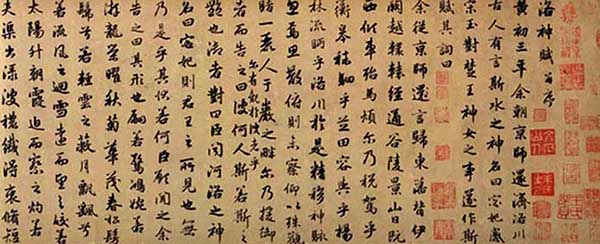 洛神賦 並序
黃初三年余朝京師還濟洛川
古人有言斯水之神名曰宓妃感
宋玉對楚王神女之事遂作斯
賦其詞曰
余從京師還言歸東藩背伊
闕越轘轅經通谷陵景山日既
西傾車殆馬煩尔乃稅駕乎
蘅皋秣駟乎芝田容與乎楊
林流眄乎洛川於是精移神駭
忽焉思散俯則未察仰以殊觀
睹一麗人于巖之畔尔乃援御
者而告之曰尔有覿於彼者乎彼何人斯若斯之
艷也御者對曰臣聞河洛之神
名曰宓妃則君王之所見也無
乃是乎其狀若何臣願聞之余
告之曰其形也翩若驚鴻婉若
游龍榮曜秋菊華茂春松髣
髴兮若輕雲之蔽月飄颻兮
若流風之迴雪遠而望之皎若
太陽升朝霞迫而察之灼若
夫渠出淥波穠纖得衷脩短